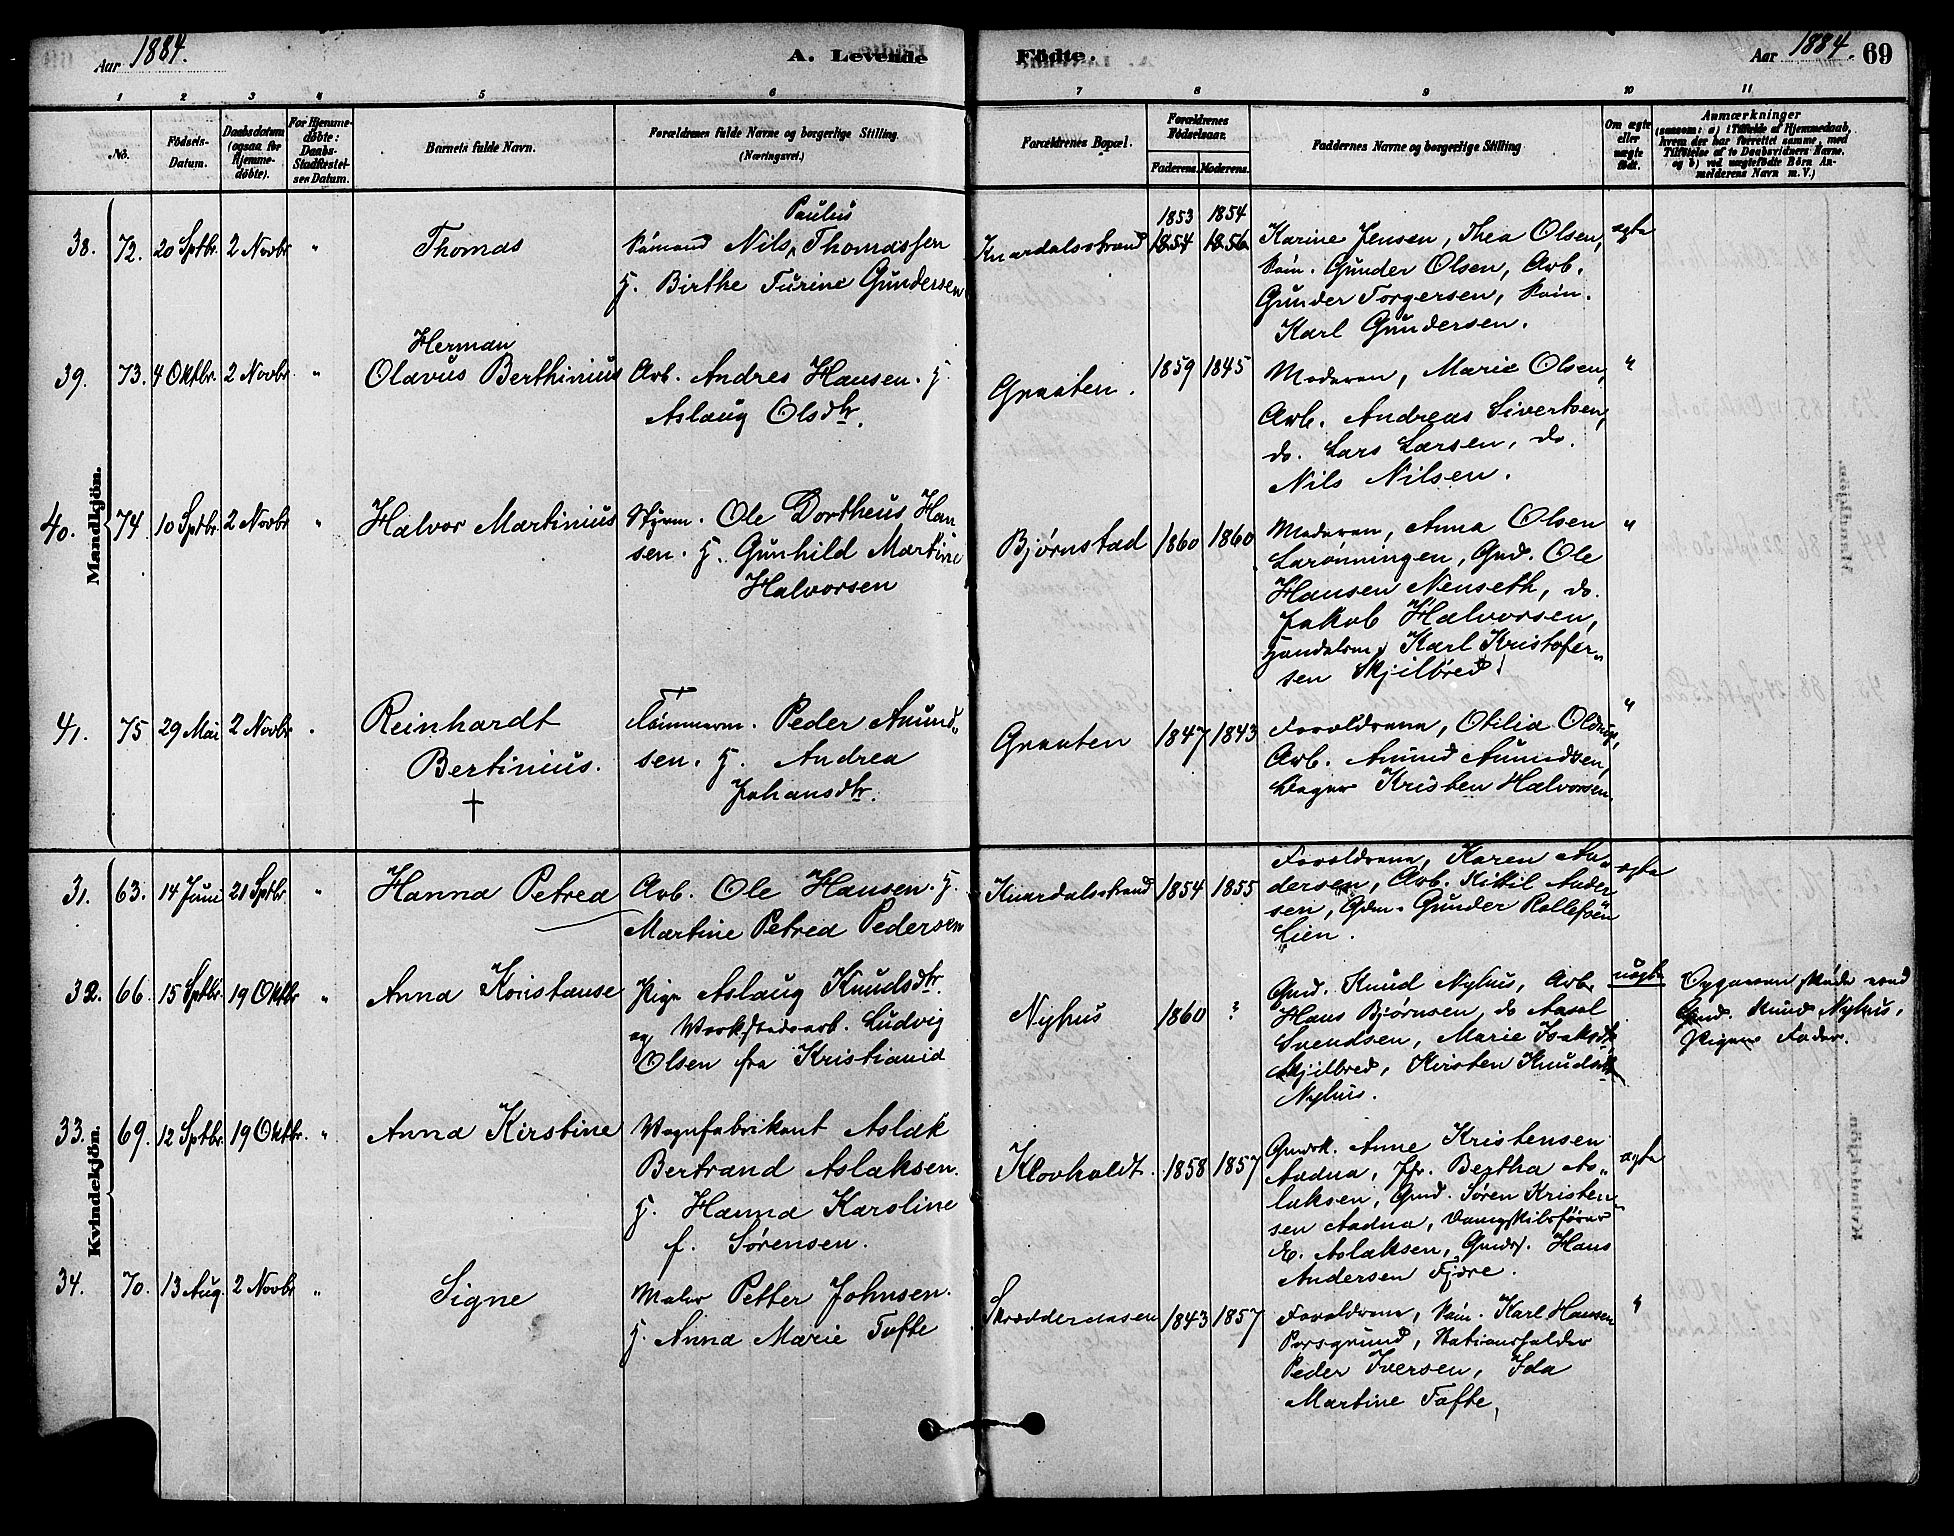 Aar 1884.
A. Levende
Födte.
Aar 1884.
69
1 2 3 4 5 6 7 8 9 10 11
No.
Födsels-
Datum.
Daabsdatum
(ogsaa for
Hjemme-
døbte).
For Hjemme-
døbte:
Daabs-
Stadfæstel-
ses Datum.
Barnets fulde Navn.
Forældrenes fulde Navne og borgerlige Stilling.
(Næringsvei.)
Forældrenes Bopæl.
Forældrenes
Födselsaar.
Faderens. Moderens.
Faddernes Navne og borgerlige Stilling
Om ægte
eller
uægte
født.
Anmærkninger
(saasom: a) i Tilfælde af Hjemmedaab,
hvem der har forrettet samme, med
Tilföielse af to Daabsvidners Navne.
og b) ved uægtefødte Börn An-
melderens Navn m. V.)
Mandkjön.
38. 72. 20 Sptbr. 2 Novbr " Thomas
Paulus
Sömand Nils Thomassen
H. Birthe Turine Gundersen
Knardalsstrand
1853 1854
1854 1856
Karine Jensen, Thea Olsen,
Söm. Gunder Olsen, Arb.
Gunder Torgersen, Söm.
Karl Gundersen.
ægte
39. 73. 4 Oktbr. 2 Novbr "
Herman
Olavus Berthinius
Arb. Andres Hansen. H.
Aslaug Olsdtr.
Graaten.
1859 1845
Moderen, Marie Olsen,
Arb. Andreas Sivertsen,
do. Lars Larsen, do.
Nils Nilsen.
"
40. 74 10 Sptbr. 2 Novbr " Halvor Martinius
Styrm. Ole Dortheus Han
sen. H. Gunhild Martine
Halvorsen
Bjørnstad
1860 1860
Moderen, Anna Olsen
Larönningen, Gmd. Ole
Hansen Nenseth, do.
Jakob Halvorsen,
Handelsm. Karl Kristofer-
sen Skjilbred.
"
41. 75 29 Mai 2 Novbr "
Reinhardt
Bertinius.
†
Tömmerm. Peder Amund-
sen. H. Andrea
Johansdtr.
Graaten
1847 1843
Forældrene, Otilia
Arb. Amund Amundsen,
Kristen Halvorsen.
"
Kvindekjön.
31. 63. 14 Juni 21 Sptbr. " Hanna Petrea
Arb. Ole Hansen. H.
Martine Petrea Pedersen
Knardalsstrand
1854 1855
Forældrene, Karen An-
dersen, Arb. Kittil Ander
sen, Gdm. Gunder Rollefsen
Lien.
ægte
32. 66. 15 Sptbr. 19 Oktbr " Anna Konstanse
Pige Aslaug Knudsdtr.
og Værkstedsarb. Ludvig
Olsen fra Kristiania
Nyhus
1860 ?
Gmd. Knud Nyhus, Arb.
Hans Bjørnsen, do Aasol
Svendsen, Marie Isaksdtr
Skjilbred, Kirsten Knudsdtr
Nyhus.
uægte
Opgaven skede ved
Gmd. Knud Nyhus,
Pigens Fader.
33. 69. 12 Sptbr. 19 Oktbr. " Anna Kirstine
Vognfabrikant Aslak
Bertrand Aslaksen.
H. Hanna Karoline
f. Sørensen.
Klovholdt.
1858 1857
Gmdk. Anne Kristensen
Aadna, Jfr. Bertha As-
laksen, Gmd. Sören Kristen-
sen Aadna, Dampskibsförer
E. Aslaksen, Gmds. Hans
Andersen Fjære.
ægte
34. 70. 13 Aug. 2 Novbr " Signe
Maler Petter Johnsen.
H. Anna Marie Tofte
Skrædderaasen
1843 1857
Forældrene, Söm. Karl Hansen
Porsgrund, Stationsholder
Peder Iversen, Ida
Martine Tofte.
"